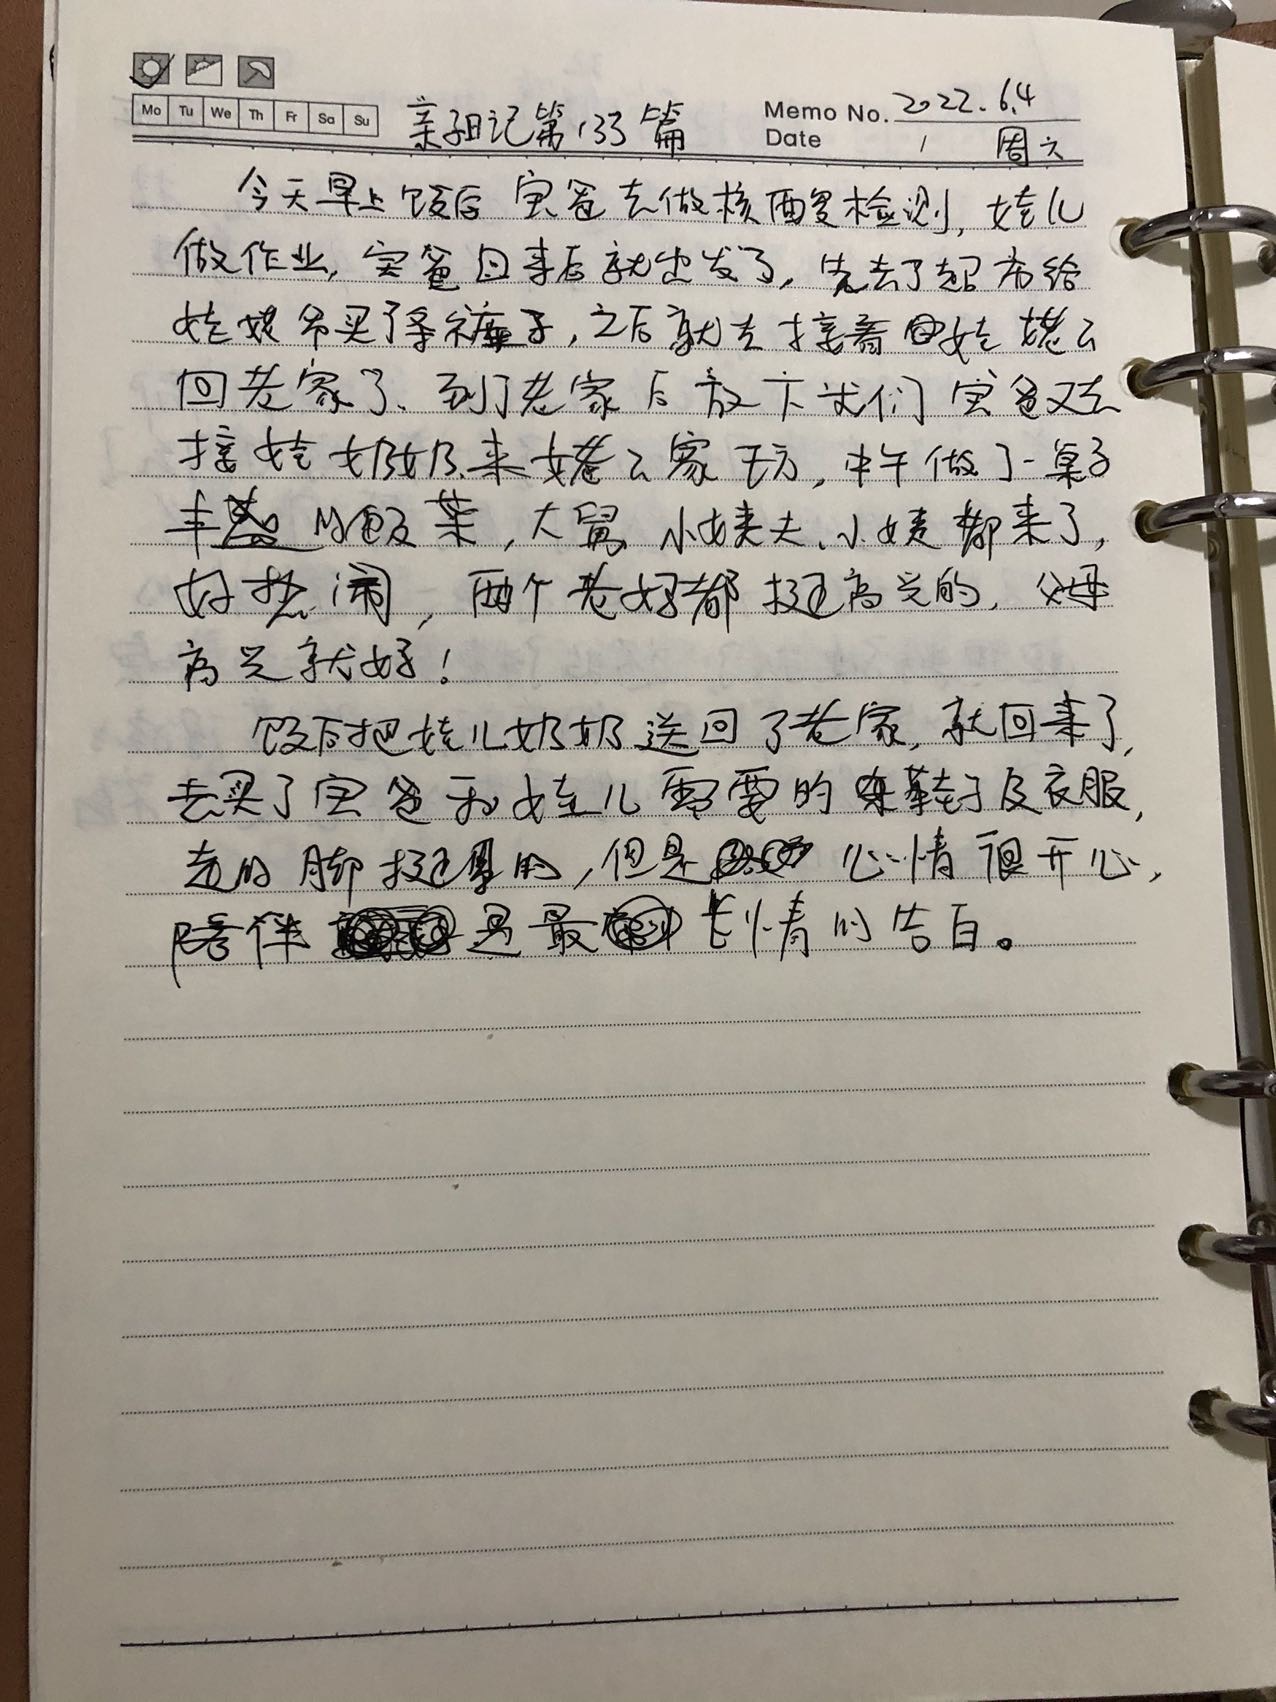 Mo Tu We Th Fr Sa Su
亲子日记第133篇
Memo No. 2022.6.4
Date / 周六
今天早上饭后宝爸去做核酸检测,娃儿
做作业,宝爸回来后就出发了,先去了超市给
娃姥爷买了条裤子,之后就去接着娃姥姥
回老家了、到了老家后放下我们宝爸又去
接娃奶奶来姥姥家玩,中午做了一桌子
丰盛的饭菜,大舅、小姨夫、小姨都来了,
好热闹,两个老妈都挺高兴的,父母
高兴就好!
饭后把娃儿奶奶送回了老家,就回来了,
去买了宝爸和娃儿需要的鞋子及衣服,
走的脚挺累的,但是心情很开心,
陪伴是最长情的告白。